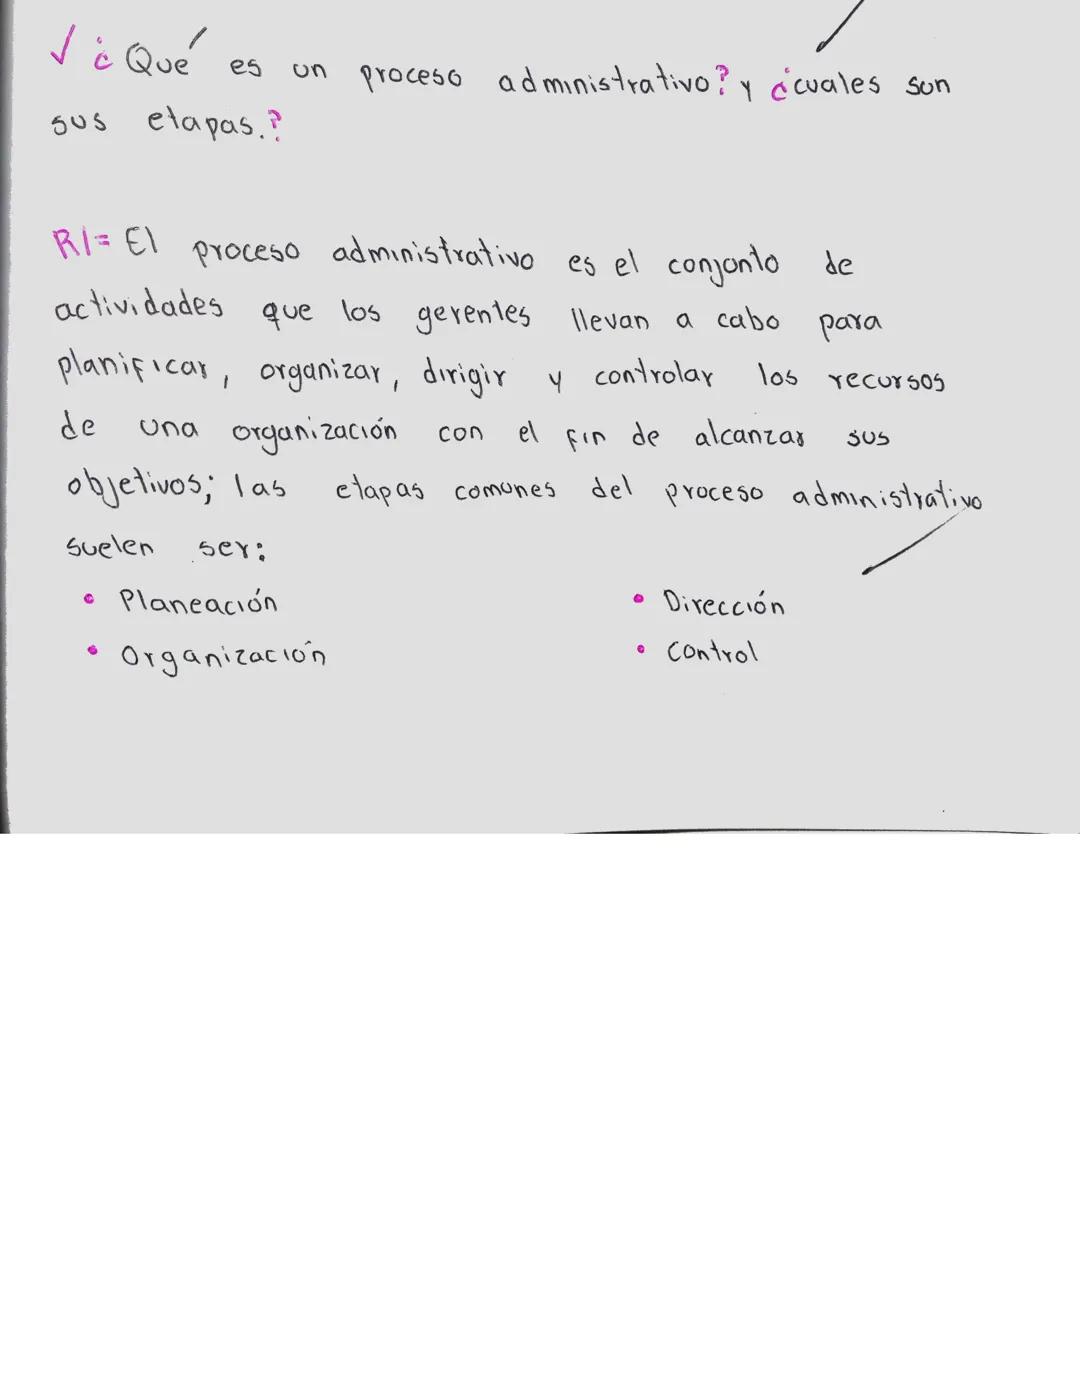 ✓ ¿Qué es un proceso administrativo? y ¿cuales son
sus etapas.?
R/= El proceso administrativo es el conjunto de
actividades que los gerentes llevan a cabo para
planificar, organizar, dirigir y controlar los recursos
de una organización con el fin de alcanzar sus
objetivos; las etapas comunes del proceso administrativo
suelen ser:
• Planeación
• Organización
• Dirección
• Control